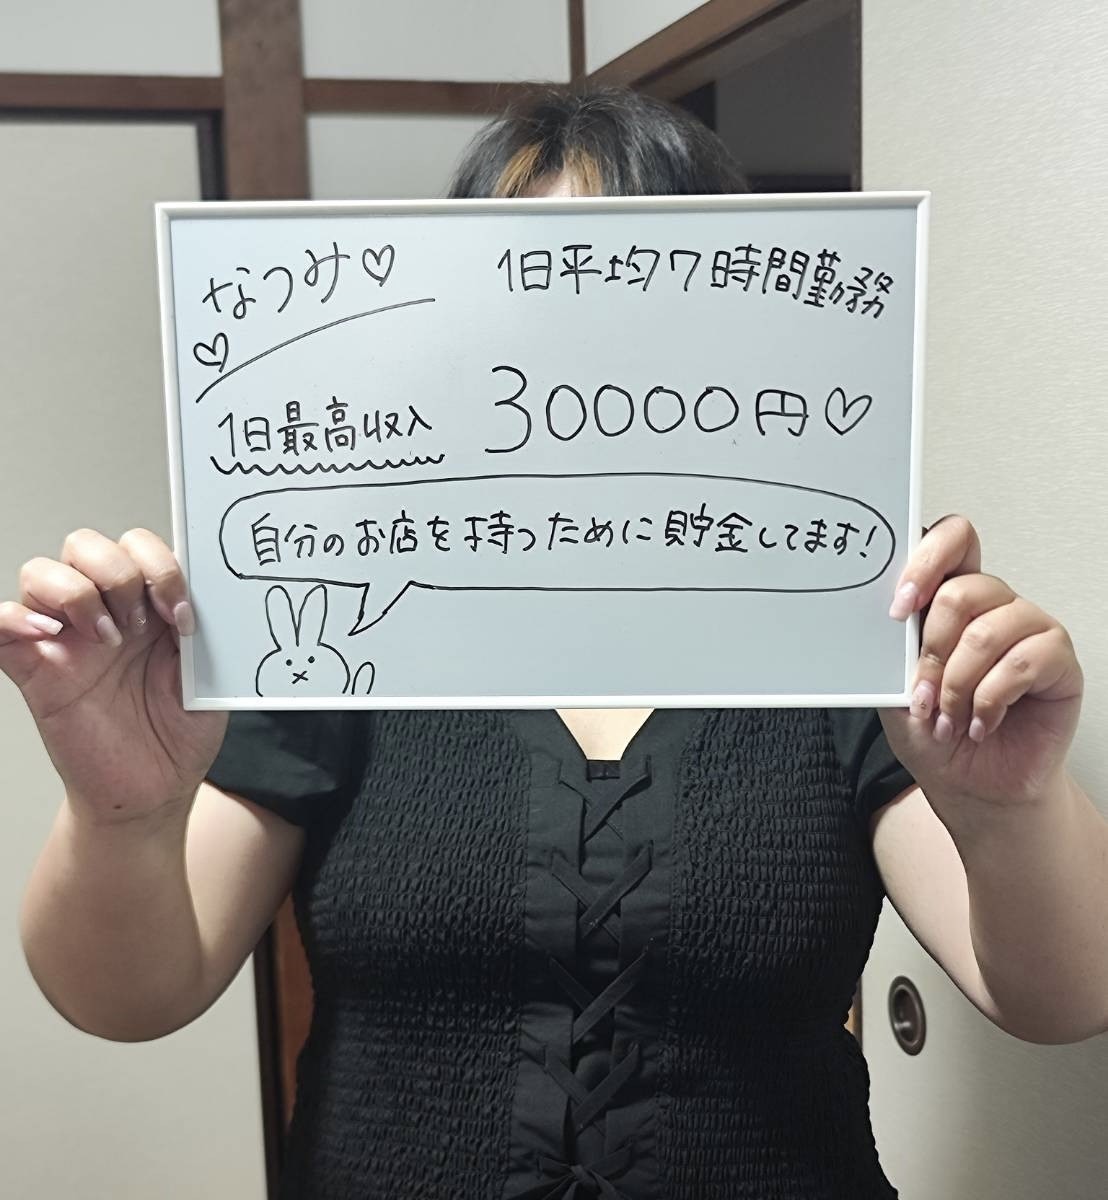 なつみ♡
1日平均7時間勤務
♡
1日最高収入 30000円♡
自分のお店を持つために貯金してます!